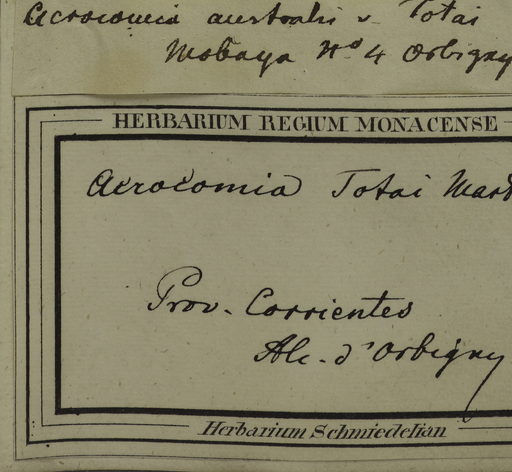 Acrocomia australis v Totai
Mobaya No 4 Orbigny
HERBARIUM REGIUM MONACENSE
Acrocomia Totai Mart
Prov. Corrientes
Alc. d'Orbigny
Herbarium Schmiedelian